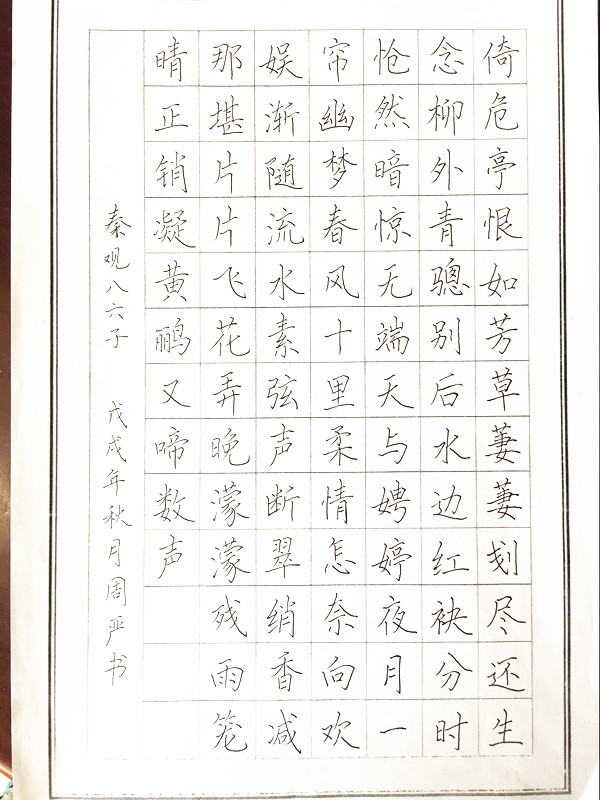 倚危亭恨如芳草萋萋刬尽还生
念柳外青骢别后水边红袂分时
怆然暗惊无端天与娉婷夜月一
帘幽梦春风十里柔情怎奈向欢
娱渐随流水素弦声断翠绡香减
那堪片片飞花弄晚濛濛残雨笼
晴正销凝黄鹂又啼数声
秦观八六子 戊戌年秋月周严书